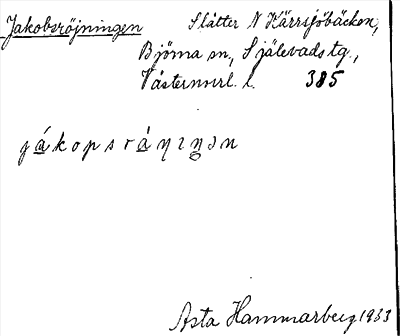 Jakobsröjningen Slåtter N Kärrsjöbäcken,
Björna sn, Själevads tg.,
Västernorrl. l. 385
Asta Hammarberg 1933